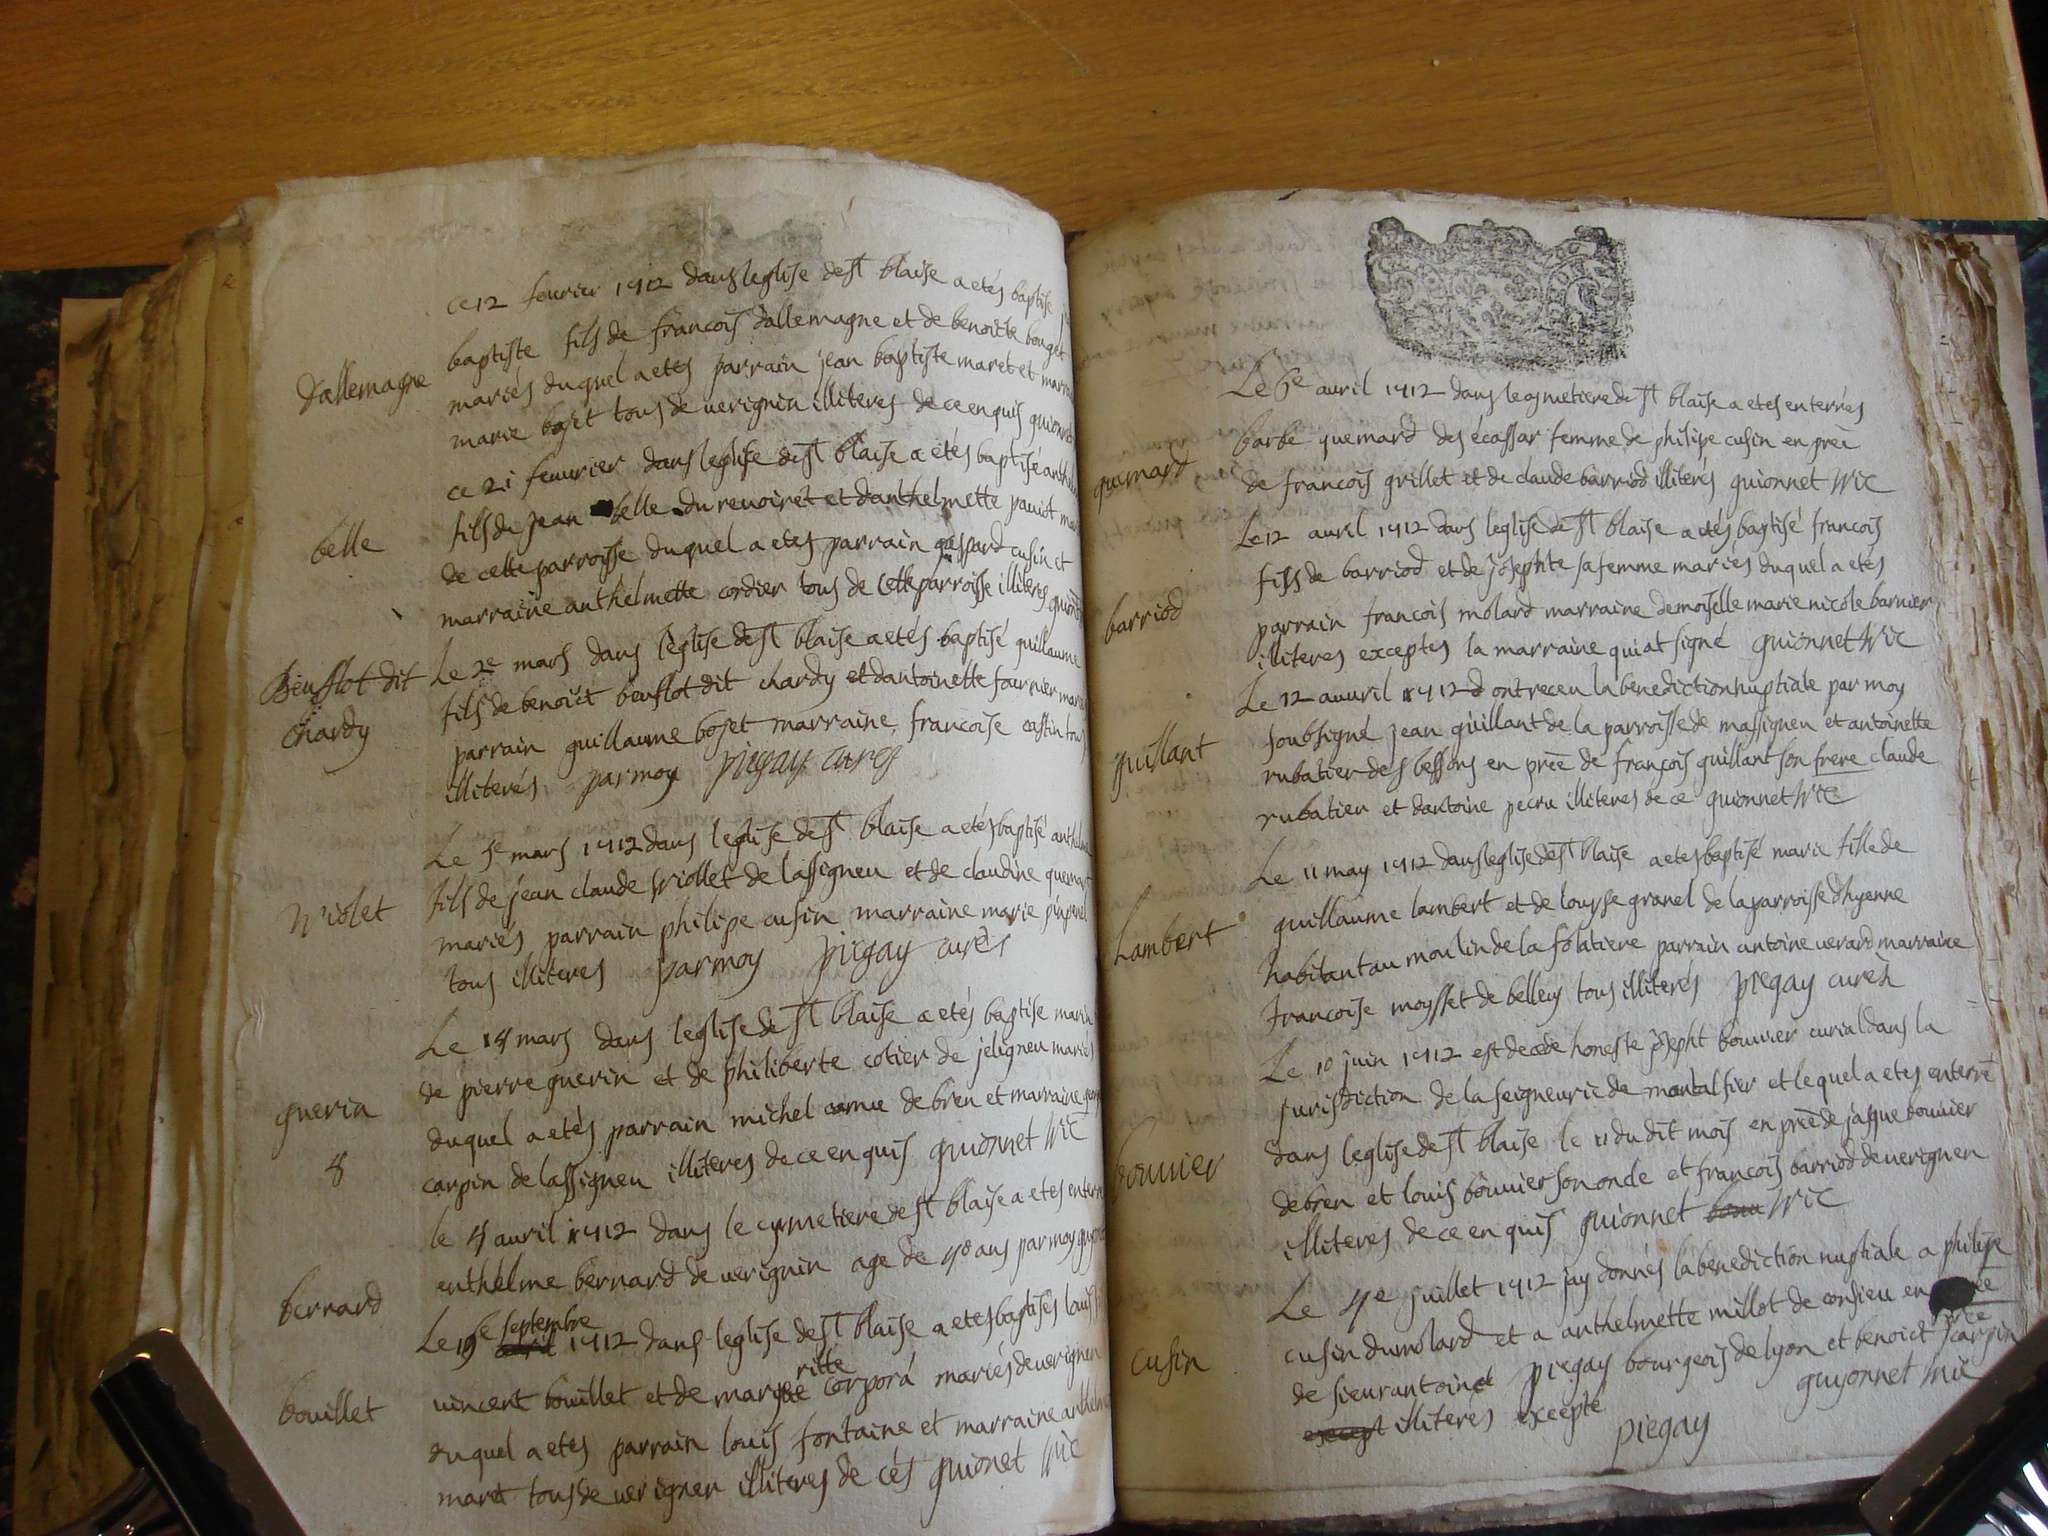 ce 12 feurier 1712 dans leglise de st blaise a etés baptise
dallemagne
baptiste fils de francois dallemagne et de benoitte bouget
mariés duquel a etes parrain jean baptiste maret et
marie bojet tous de uerignin illiteres de ce enquis guionnet
ce 21 feuurier dans leglise de st blaise a etés baptisé
belle
fils de jean belle du reuoiret et danthelmette pauiot
de cette parroisse duquel a etes parrain gaspard cusin et
marraine anthelmette cordier tous de cette parroisse illiteres
Beufflot dit
chardy
Le 2e mars dans leglise de st blaise a etés baptisé guillaume
fils de benoict beuflot dit chardy et dantoinette fournier
parrain guillaume bojet marraine francoise castin tous
illiterés par moy piegay curés
Le 5e mars 1712 dans leglise de st blaise a etés baptisé
Violet
fils de jean claude Viollet de lassigneu et de claudine
mariés parrain philipe cusin marraine marie
tous illiteres par moy piegay curés
Le 14 mars dans leglise de st blaise a etés baptise
guerin
4
de pierre guerin et de philiberte cotier de jeligneu mariés
duquel a etés parrain michel carnue de bren et marraine
carpin de lassigneu illiteres de ce enquis guionnet vic
le 4 auril 1712 dans le cymetiere de st blaise a etes enterré
bernard
enthelme bernard de uerignin age de 40 ans par moy
Le 19e septembre 1712 dans leglise de st blaise a etes baptisés
bouillet
uincent bouillet et de margueritte corporá mariés de uerignen
duquel a etes parrain louis fontaine et marraine
maret tous de uerignen illiteres de cés guionet vic
Le 6e auril 1712 dans le cymetiere de st blaise a etes enterrés
quemard
barbe quemard des écassar femme de philipe cusin en pree
de francois grillet et de claude barriod illiterés guionnet vic
Le 12 auril 1712 dans leglise de st blaise a etés baptisé francois
barriod
fils de barriod et de josephte sa femme mariés duquel a etes
parrain francois molard marraine demoiselle marie nicole barnier
illiteres exceptes la marraine qui at signé guionnet vic
Le 12 auuril 1712 ont receu la benediction nuptiale par moy
guillant
soubsigné jean guillant de la parroisse de massigneu et antoinette
rubatier des bessons en preé de françois guillant son frere claude
rubatier et dantoine pecru illiteres de cé guionnet vic
Le 11 may 1712 dans leglise de st blaise a etes baptisé marie fille de
Lambert
guillaume lambert et de louyse granel de la parroisse dhyenne
habitant au moulin de la folatiere parrain antoine uerard marraine
francoise moysset de belley tous illiterés piegay curés
Le 10 juin 1712 est decede honeste josepht bouuier curial dans la
jurisdiction de la seigneurie de montalfier et lequel a etes enterré
bouuier
dans leglise de st blaise le 11 du dit mois en preé de jasque bouuier
de bren et louis bouuier son oncle et francois barriod de uerignen
illiteres de ce enquis guionnet vic
Le 4e juillet 1712 jay donnés la benediction nuptiale a philipe
cusin
cusin du molard et a anthelmette millot de consieu en preé
de sieur antoine piegay bourgeois de lyon et benoict carpin
illiterés excepté guyonnet vic
piegay